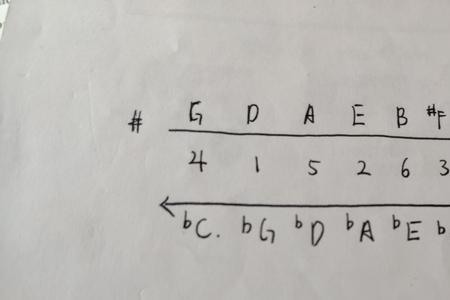 # G D A E B #F
4 1 5 2 6 3
bC. bG bD bA bE b